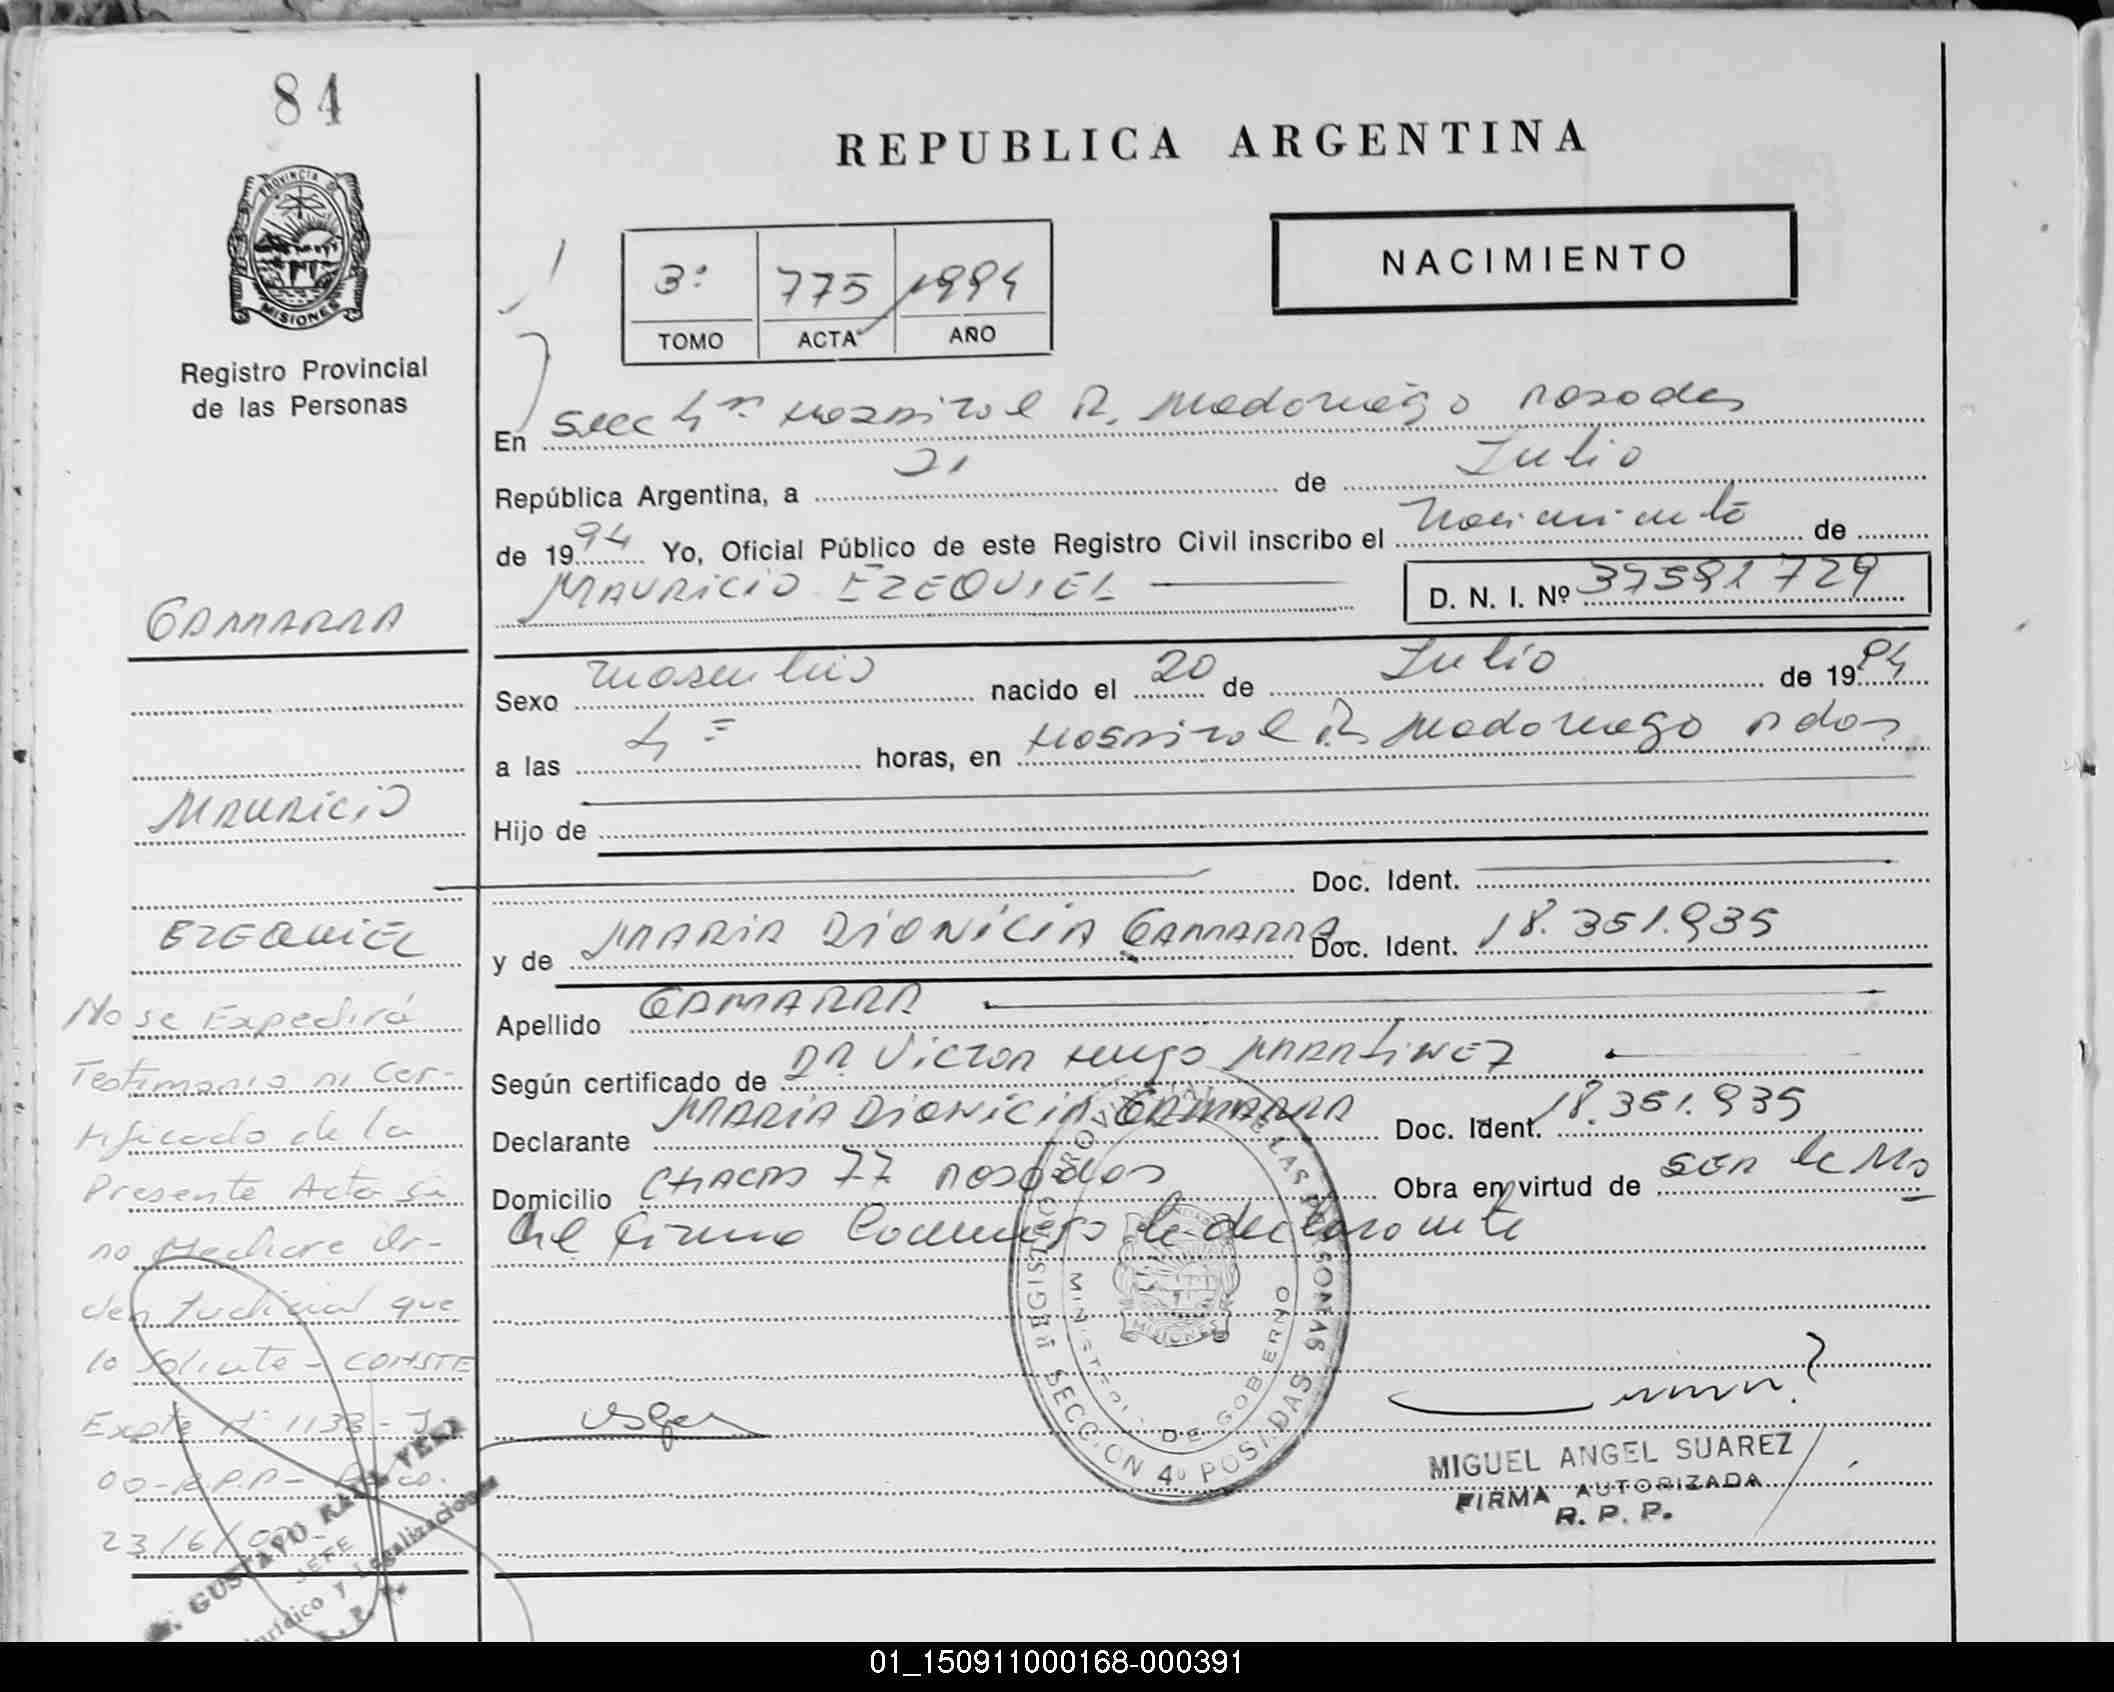 84
REPUBLICA ARGENTINA
PROVINCIA DE
MISIONES
Registro Provincial
de las Personas
3º 775 1994
TOMO ACTA AÑO
NACIMIENTO
En Secc 4ta Hospital R. Madariaga Posadas
República Argentina, a 21 de Julio
de 1994 Yo, Oficial Público de este Registro Civil inscribo el Nacimiento de
MAURICIO EZEQUIEL D. N. I. Nº
Sexo Masculino nacido el 20 de Julio de 1994
a las 4 horas, en Hospital R. Madariaga Pdas
Hijo de
Doc. Ident.
y de MARIA DIONICIA GAMARRA Doc. Ident. 18.351.935
Apellido GAMARRA
Según certificado de DR VICTOR Hugo MARTINEZ
Declarante MARIA DIONICIA GAMARRA Doc. Ident. 18.351.935
Domicilio CHACAS 77 Posadas Obra en virtud de SER la Ma
dre firma conmigo la declarante
GAMARRA
MAURICIO
EZEQUIEL
No se Expedirá
Testimonio ni Cer-
tificado de la
Presente Acta si
no Mediare Or-
den Judicial que
lo Solicite - CONSTE
Expte Nº 1133-J-
00-R.P.P- Pdas.
23/6/00-
GUSTAVO RAUL VERA
JEFE
Jurídico y Legalizaciones
R. P. P.
REGISTRO PROVINCIAL DE LAS PERSONAS
MINISTERIO DE GOBIERNO
MISIONES
SECCION 4º POSADAS
MIGUEL ANGEL SUAREZ
FIRMA AUTORIZADA
R. P. P.
01_150911000168-000391